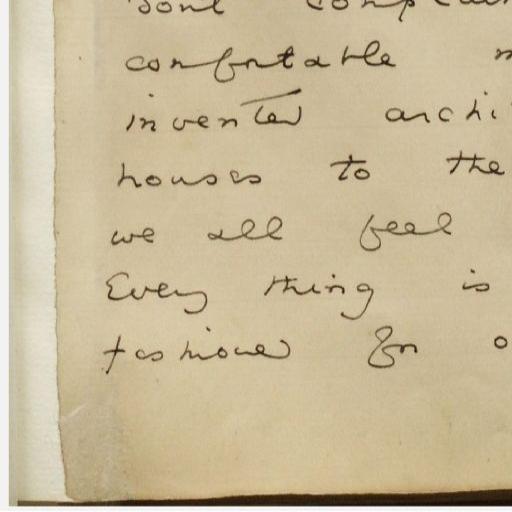 dont complai
comfortable m
invented archi
houses to the
we all feel
Every thing is
fashioned for o